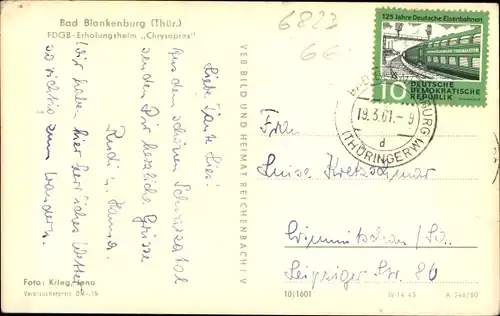 Bad Blankenburg (Thür.)
FDGB-Erholungsheim „Chrysopras"
6823
66
Liebe Tante Lies!
Aus dem schönen Schwarzatal
senden Dir herzliche Grüsse
Rudi u. Hanna.
Wir haben hier herrliches Wetter
so richtig zum wandern.
Foto: Krieg, Jena
Verbraucherpreis DM -,15
VEB BILD UND HEIMAT REICHENBACH I. V
125 Jahre Deutsche Eisenbahnen
10
DEUTSCHE
DEMOKRATISCHE
REPUBLIK
BAD BLANKENBURG
19.3.61.-9
d
(THÜRINGERW)
Frau
Luise Kretzschmar
Crimmitschau/Sa.
Leipziger Str. 86
10/1601
IV-14-45
A 746/60